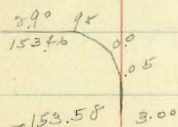 2.90 95
153.46 0.0
0.5
-153.58 3.00